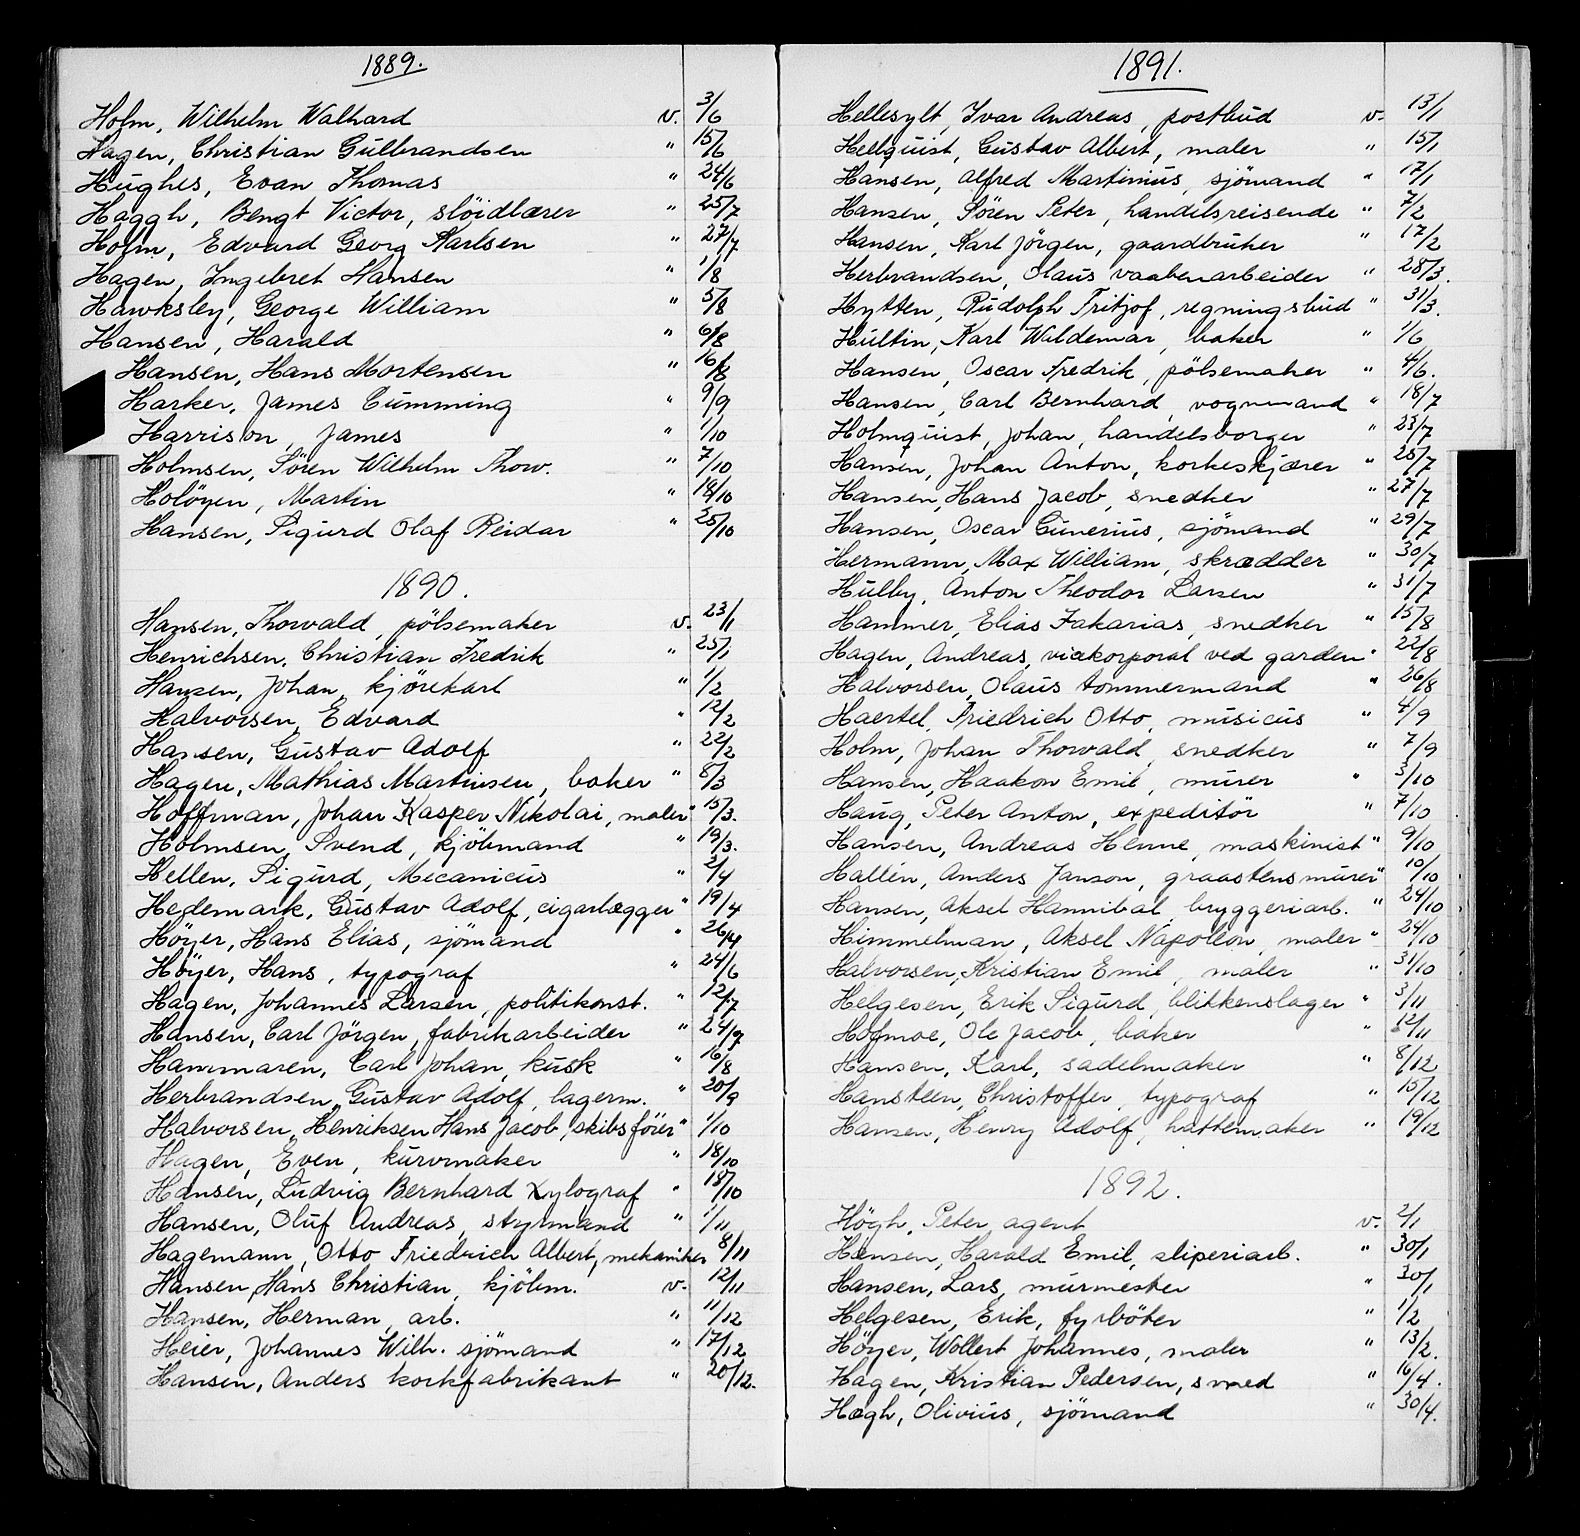 1889.
Holm, Wilhelm Walhard v. 3/6
Hagen, Christian Gulbrandsen " 15/6
Hughes, Evan Thomas " 24/6
Haggh, Bengt Victor, slöidlærer " 25/7
Holm, Edvard Georg Karlsen " 27/7
Hagen, Ingebret Hansen " 1/8
Hawksley, George William " 5/8
Hansen, Harald " 6/8
Hansen, Hans Mortensen " 16/8
Harker, James Cumming " 9/9
Harrison, James " 1/10
Holmsen, Sören Wilhelm Thow. " 7/10
Holöyen, Martin " 18/10
Hansen, Sigurd Olaf Reidar " 25/10
1890.
Hansen, Thorvald, pölsemaker v. 23/1
Henrichsen, Christian Fredrik " 25/1
Hansen, Johan, kjörekarl " 1/2
Halvorsen, Edvard " 12/2
Hansen, Gustav Adolf " 22/2
Hagen, Mathias Martinsen, baker " 8/3
Hoffman, Johan Kasper Nikolai, maler " 15/3.
Holmsen, Svend, kjöbmand " 19/3.
Hellen, Sigurd, Mecanicus " 2/4
Hedemark, Gustav Adolf, cigarlægger " 19/4
Höyer, Hans Elias, sjömand " 26/4
Höyer, Hans, typograf " 24/6
Hagen, Johannes Larsen, politikonst. " 12/7
Hansen, Carl Jörgen, fabrikarbeider " 24/7
Hammaren, Carl Johan, kusk " 16/8
Herbrandsen, Gustav Adolf, lagerm. " 20/9
Halvorsen, Henriksen Hans Jacob, skibsförer " 1/10
Hagen, Even, kurvmaker " 18/10
Hansen, Ludvig Bernhard Xylograf " 18/10
Hansen, Oluf Andreas, styrmand " 1/11
Hagemann, Otto Friedrich Albert, mekaniker 8/11
Hansen, Hans Christian, kjöbm. v. 12/11
Hansen, Herman, arb. " 11/12
Heier, Johannes Wilh. sjömand " 17/12
Hansen, Anders korkfabrikant " 20/12.
1891.
Hellesylt, Ivar Andreas, postbud v. 13/1
Hellquist, Gustav Albert, maler " 15/1
Hansen, Alfred Martinius, sjömand " 17/1
Hansen, Sören Peter, handelsreisende " 7/2
Hansen, Karl Jörgen, gaardbruker " 17/2
Herbrandsen, Olaus vaabenarbeider " 28/3.
Hytten, Rudolph Fritjof, regningsbud " 31/3.
Hultin, Karl Waldemar, baker " 1/6
Hansen, Oscar Fredrik, pölsemaker " 4/6.
Hansen, Carl Bernhard, vognmand " 18/7
Holmquist, Johan, handelsborger " 23/7
Hansen, Johan Anton, korkeskjærer " 25/7
Hansen, Hans Jacob, snedker " 27/7
Hansen, Oscar Gunerius, sjömand " 29/7
Hermann, Max William, skrædder " 30/7
Hulby, Anton Theodor Larsen " 31/7
Hammer, Elias Zakarias, snedker " 15/8
Hagen, Andreas, vicekorporal ved garden " 22/8
Halvorsen, Olaus tømmermand " 26/8
Haertel, Friedrich Otto, musicus " 4/9
Holm, Johan Thorvald, snedker " 7/9
Hansen, Haakon Emil, murer " 3/10
Haug, Peter Anton, expeditör " 7/10
Hansen, Andreas Henne, maskinist " 9/10
Hallén, Anders Janson, graastensmurer " 10/10
Hansen, Aksel Hannibal, bryggeriarb. " 24/10
Himmelman, Aksel Napoleon, maler " 24/10
Halvorsen, Kristian Emil, maler " 31/10
Helgesen, Erik Sigurd, blikkenslager " 3/11
Hofmoe, Ole Jacob, baker " 12/11
Hansen, Karl, sadelmaker " 8/12
Hansteen, Christoffer, typograf " 15/12
Hansen, Henry Adolf, hattemaker " 19/12
1892.
Högh, Peter, agent v. 2/1
Hansen, Harald Emil, sliperiarb. " 30/1
Hansen, Lars, murmester " 30/1
Helgesen, Erik, fyrböter " 1/2
Höyer, Wollert Johannes, maler " 13/2.
Hagen, Kristian Pedersen, smed " 16/4.
Høgh, Olivius, sjömand " 30/4.